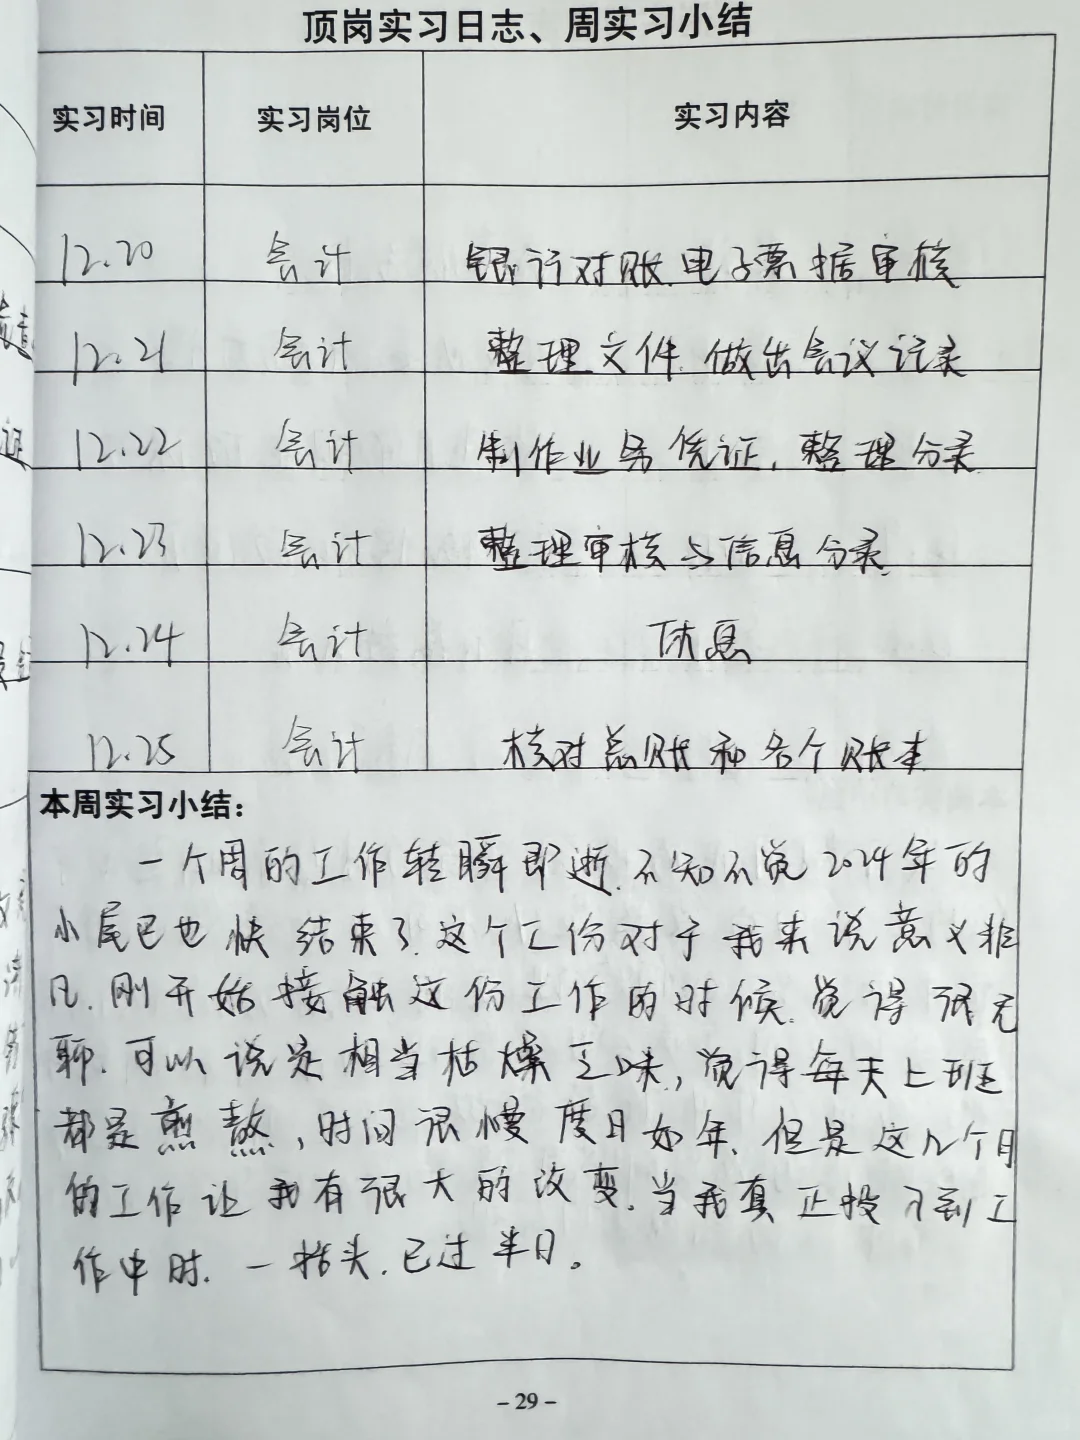 顶岗实习日志、周实习小结
实习时间 实习岗位 实习内容
12.20 会计 银行对账.电子票据审核
12.21 会计 整理文件.做出会议记录
12.22 会计 制作业务凭证,整理分录
12.23 会计 整理审核与信息分录
12.24 会计 休息
12.25 会计 核对总账和各个账本
本周实习小结:
一个周的工作转瞬即逝.不知不觉2024年的
小尾巴也快结束了.这个工份对于我来说意义非
凡.刚开始接触这份工作的时候.觉得很无
聊.可以说是相当枯燥乏味,觉得每天上班
都是煎熬,时间很慢度日如年.但是这几个月
的工作让我有很大的改变.当我真正投到工
作中时.一抬头.已过半日。
-29-